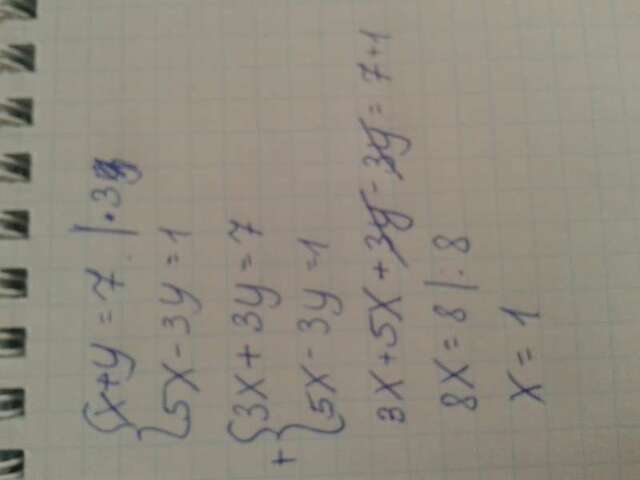 {x+y=7 |·3
{5x-3y=1
+ {3x+3y=7
{5x-3y=1
3x+5x+3y-3y=7+1
8x=8 |:8
x=1